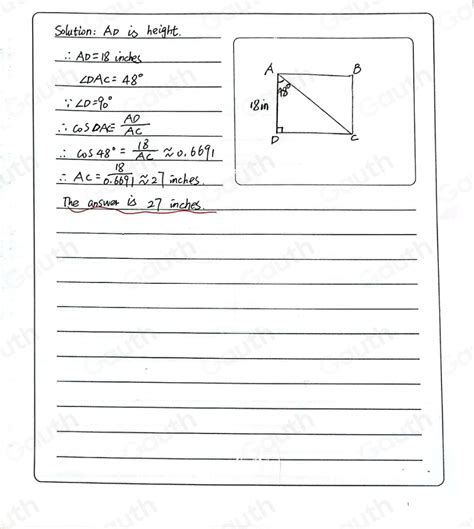 Solution: AD is height.
∴ AD=18 inches
∠DAC=48°
∵ ∠D=90°
∴ cosDAC=AD/AC
∴ cos48°=18/AC≈0.6691
∴ AC=18/0.6691≈27 inches.
The answer is 27 inches.
A B
48°
18in
D C
Gauth